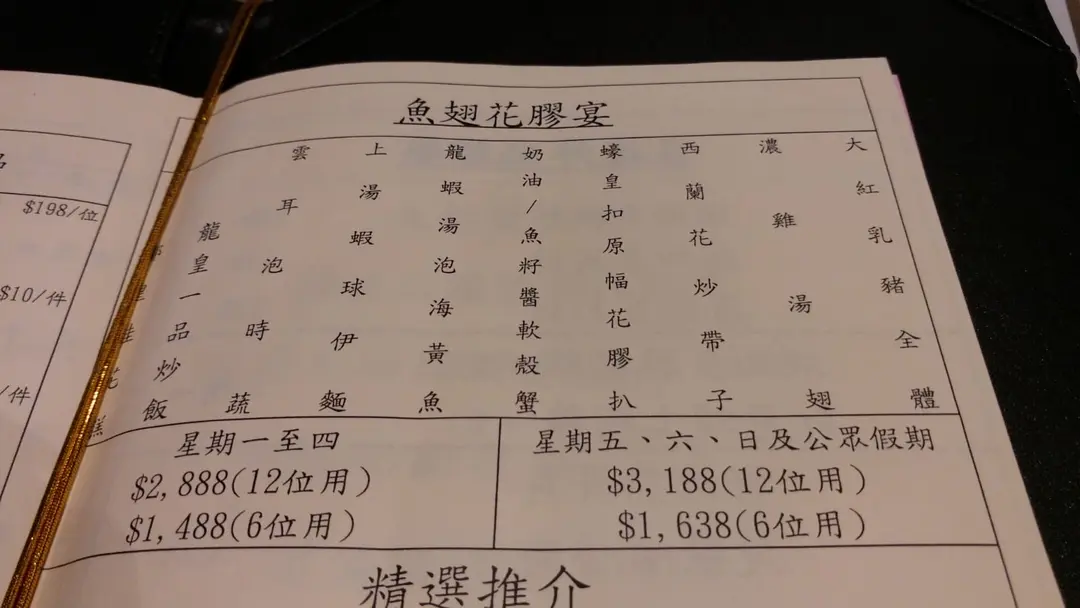 $198/位
$10/件
/件
魚翅花膠宴
大紅乳豬全體
濃雞湯翅
西蘭花炒帶子
蠔皇扣原幅花膠扒
奶油/魚籽醬軟殼蟹
龍蝦湯泡海黃魚
上湯蝦球伊麵
雲耳泡時蔬
龍皇一品炒飯
花糕
星期一至四
$2,888(12位用)
$1,488(6位用)
星期五、六、日及公眾假期
$3,188(12位用)
$1,638(6位用)
精選推介